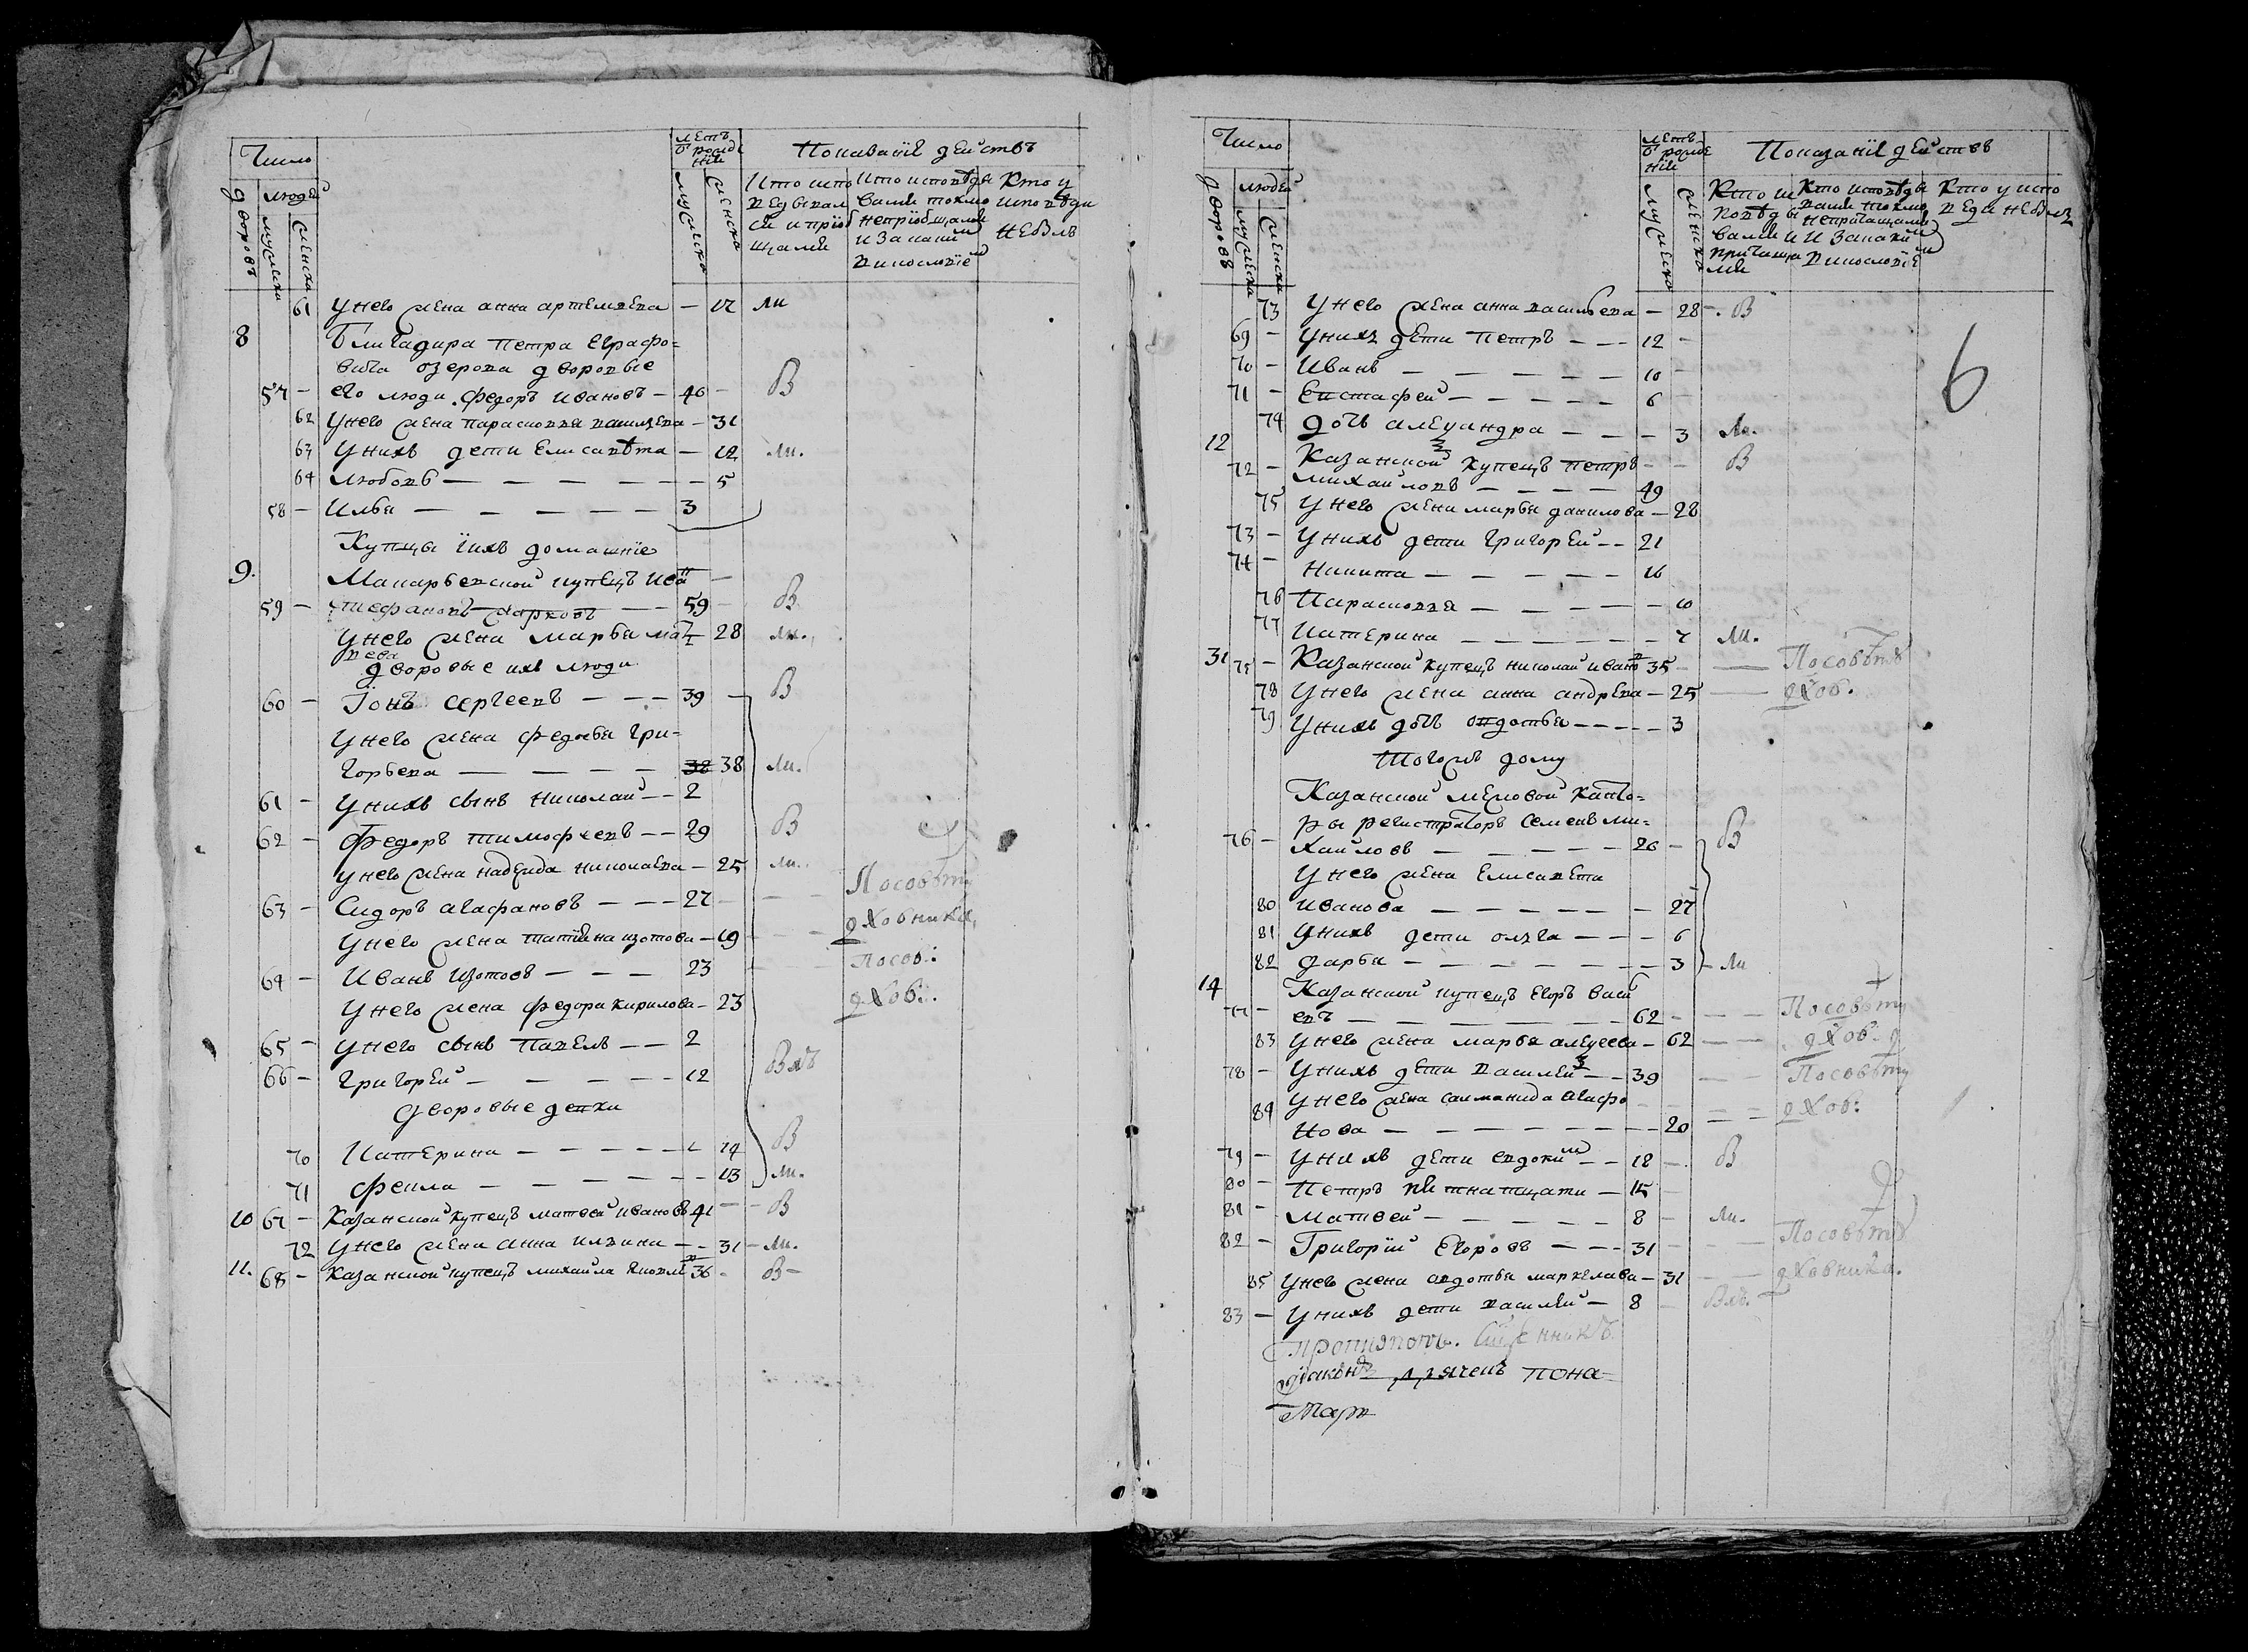 Число
летъ б рожде нїи
Показанїе действъ
дворовъ
людей
мужеска
женска
мужеска
женска
Кто испо
ведывал
ся и прїоб
щался
Кто исповѣды
вался токмо
непрїобщался
и за каким
винословїем
Кто у
исповѣди
небылъ
61 у него жена анна артемьева — 17 ли
8 Бригадира петра еграфо=
вича озерова дворовые
57 — его люди. федоръ ивановъ — 46 — В
62 у него жена парасковья васильева — 31
63 у нихъ дети елисавѣта — 12 ли.
64 любовь — — — — — — 5
58 — Илья — — — — — — 3
Купцы їихъ домашнїе
9. Макарьевской купецъ Иван —
59 — стефановъ жарковъ — — 59 — В.
у него жена марья мат — 28 ли.
веева
дворовые ихъ люди
60 — Їонъ сергеевъ — — — 39 — В
у него жена федосья гри=
горьева — — — — 38 38 ли.
61 — у нихъ сынъ николай — — 2
62 — Федоръ тимофеевъ — — 29 В
у него жена надежда николаева — 25 ли.
63 — Сидоръ агафановъ — — — 27 — — — По совѣту
у него жена татїяна изотова — 19 — — — дховника,
64 — Иванъ Изотовъ — — — 23 — — Посов:
у него жена федора кирилова — 23 дхов:.
65 — у него сынъ павелъ — — 2
66 — григорей — — — — — 12 В хъ
дворовые девки
70 Катерина — — — — — 14 В
71 фекла — — — — — — — 13 ли.
10 67 — Казанской купецъ матвей ивановъ 41 — — В
72 у него жена анна ильина — — 31 — ли.
11. 68 — казанской купецъ михайла яковле 36 — В —
Число
летъ б рожде нїи
Показанїе действъ
дворовъ
людей
мужеска
женска
мужеска
женска
Кто ис
повѣды
вался и
причаща
лся
Кто исповѣды
вался токмо
непричащался
и за каким
винословїем
Кто у испо
веди небылъ
6
73 у него жена анна васильева — 28 — . В
69 — у нихъ дети петръ — — — 12 —
70 — Иванъ — — — — — 10 —
71 — Евстафей — — — — — 6 —
74 дочь александра — — — 3 ли.
12
72 — Казанской купецъ петръ — — В
михайловъ — — — — 49
75 у него жена марья данилова — 28
73 — у нихъ дети григорей — — 21
74 — никита — — — — — 16
76 Парасковья — — — — — — 10
77 Катерина — — — — — — 7 ли.
31 75 — Казанской купецъ николай ивано 35 — — По совѣту
78 у него жена анна андрева — 25 — дхов.
79 у нихъ дочь овдотья — — — — 3
Тогожъ дому
Казанской межовой канто=
ры регистраторъ семенъ ми=
76 — хайловъ — — — — — 26 — В
у него жена елисавета
80 иванова — — — — — — 27
81 у нихъ дети ольга — — — 6
82 дарья — — — — — — — 3 — ли
14 Казанской купецъ егоръ васи
77 — евъ — — — — — — — 62 — — — По совѣту
83 у него жена марья алексеева — 62 — — дхов:
78 — у нихъ дети василей — — 39 — — По совѣту
84 у него жена саломанида агафо — — —
нова — — — — — — — — 20 — — дхов:
79 — у нихъ дети евдоким — — 18 — В
80 — Петръ пятнатцати — 15 —
81 — матвей — — — — — 8 — ли.
82 — Григорїй егоровъ — — — 31 — — — По совѣту
85 у него жена авдотья маркелава — 31 — — дховника.
83 — у нихъ дети василей — 8 — В хъ.
протопопъ. Сщенникъ
дїаконъ дьячекъ пона=
марь